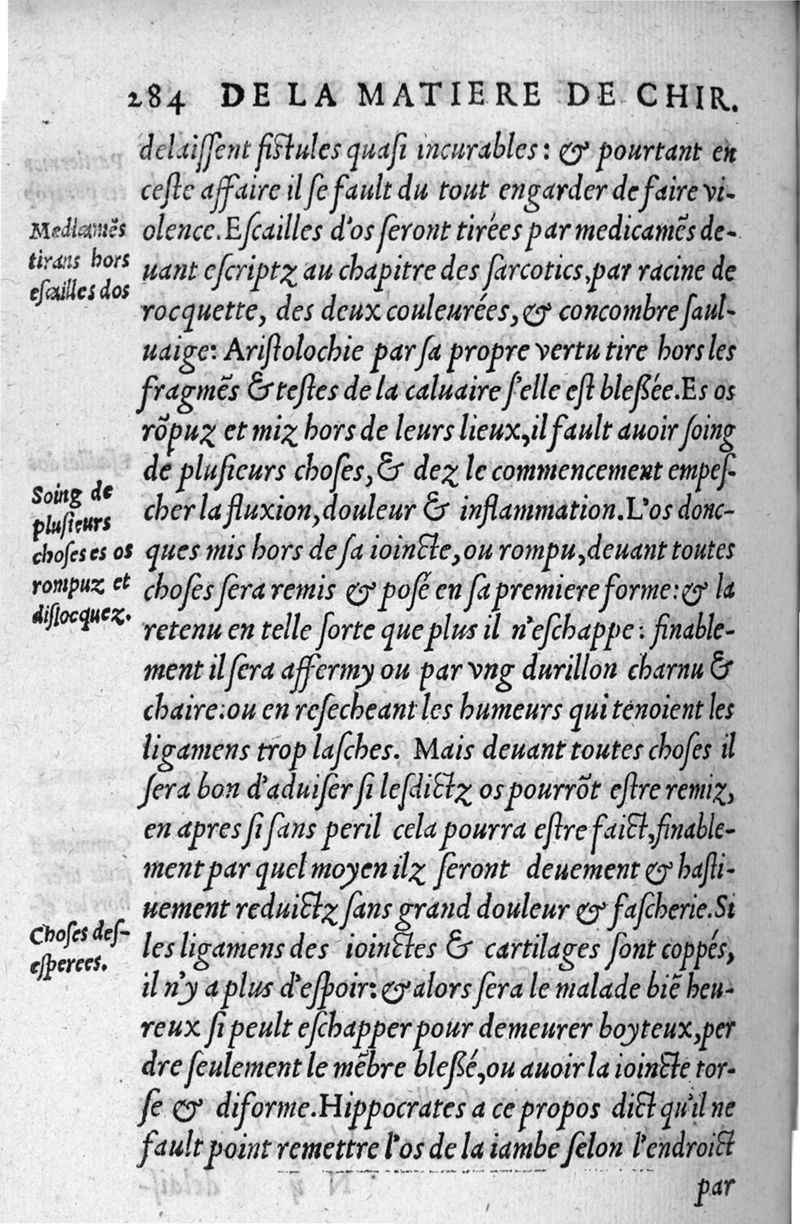 284 DE LA MATIERE DE CHIR.
delaiſſent fiſtules quaſi incurables: & pourtant en
ceſte affaire il ſe fault du tout engarder de faire vi-
olence. Eſcailles d'os ſeront tirées par medicamẽs de-
uant eſcriptz au chapitre des ſarcotics, par racine de
rocquette, des deux couleurées, & concombre ſaul-
uaige: Ariſtolochie par ſa propre vertu tire hors les
fragmẽs & teſtes de la caluaire ſ'elle eſt bleßée. Es os
rõpuz et miz hors de leurs lieux, il fault auoir ſoing
de pluſieurs choſes, & dez le commencement empeſ-
cher la fluxion, douleur & inflammation. L'os donc-
ques mis hors de ſa ioincte, ou rompu, deuant toutes
choſes ſera remis & poſé en ſa premiere forme: & la
retenu en telle ſorte que plus il n'eſchappe: finable-
ment il ſera affermy ou par vng durillon charnu &
chaire: ou en reſecheant les humeurs qui tenoient les
ligamens trop laſches. Mais deuant toutes choſes il
ſera bon d'aduiſer ſi leſdictz os pourrõt eſtre remiz,
en apres ſi ſans peril cela pourra eſtre faict, finable-
ment par quel moyen ilz ſeront deuement & haſti-
uement reduictz ſans grand douleur & faſcherie. Si
les ligamens des ioinctes & cartilages ſont coppés,
il n'y a plus d'eſpoir: & alors ſera le malade biẽ heu-
reux ſi peult eſchapper pour demeurer boyteux, per
dre ſeulement le mẽbre bleßé, ou auoir la ioincte tor-
ſe & diforme. Hippocrates a ce propos dict qu'il ne
fault point remettre l'os de la iambe ſelon l'endroict
par
Medicamẽs
tirans hors
eſcailles dos
Soing de
pluſieurs
choſes es os
rompuz et
diſlocquez.
Choſes deſ-
eſperees.